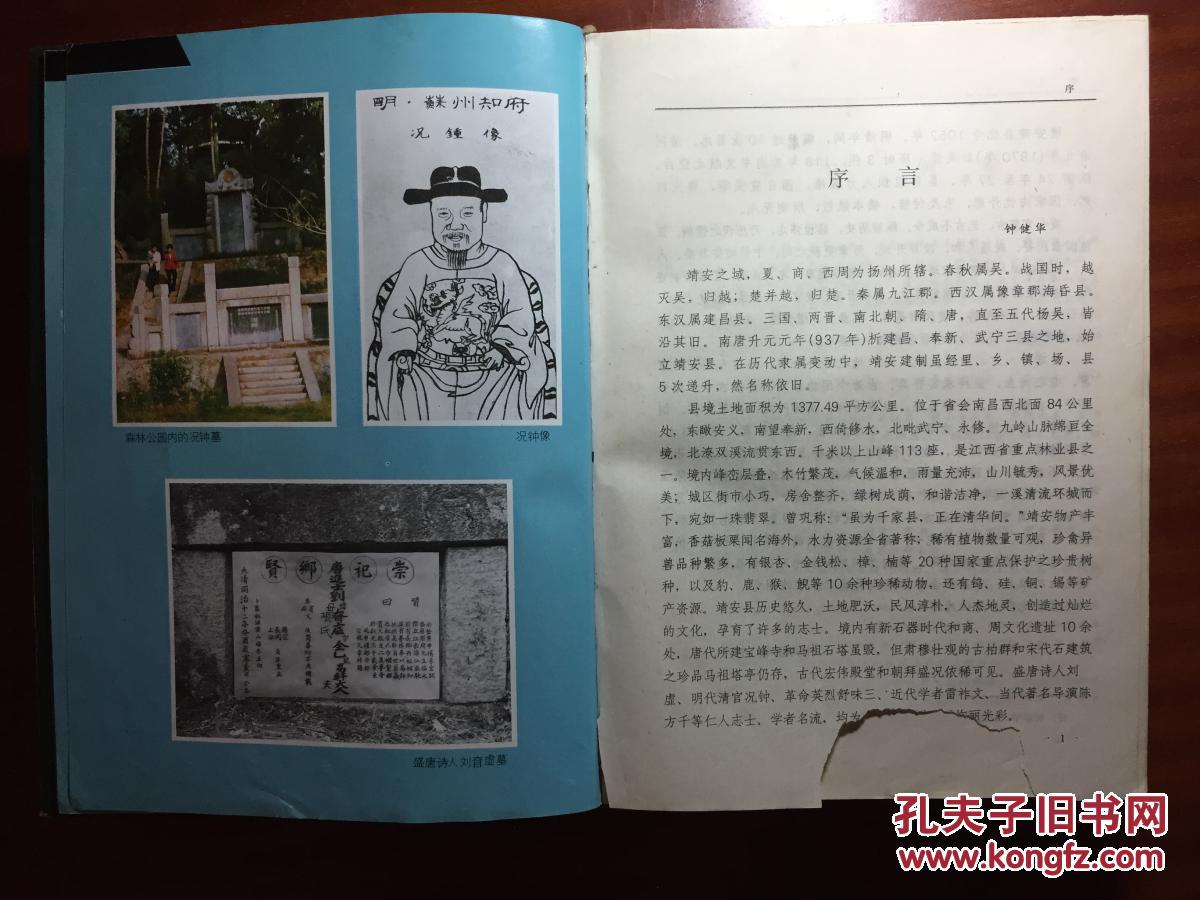 明·蘇州知府
况鍾像
森林公园内的况钟墓
况钟像
崇祀鄉賢
贊曰
大清同治十二年
盛唐诗人刘眘虚墓
序
序言
钟健华
靖安之域，夏、商、西周为扬州所辖。春秋属吴。战国时，越
灭吴，归越；楚并越，归楚。秦属九江郡。西汉属豫章郡海昏县。
东汉属建昌县。三国、两晋、南北朝、隋、唐，直至五代杨吴，皆
沿其旧。南唐升元元年(937年)析建昌、奉新、武宁三县之地，始
立靖安县。在历代隶属变动中，靖安建制虽经里、乡、镇、场、县
5次递升，然名称依旧。
县境土地面积为1377.49平方公里。位于省会南昌西北面84公里
处，东瞰安义，南望奉新，西倚修水，北毗武宁、永修。九岭山脉绵亘全
境，北潦双溪流贯东西。千米以上山峰113座，是江西省重点林业县之
一。境内峰峦层叠，木竹繁茂，气候温和，雨量充沛，山川毓秀，风景优
美；城区街市小巧，房舍整齐，绿树成荫，和谐洁净，一溪清流环城而
下，宛如一珠翡翠。曾巩称：“虽为千家县，正在清华间。”靖安物产丰
富，香菇板栗闻名海外，水力资源全省著称；稀有植物数量可观，珍禽异
兽品种繁多，有银杏、金钱松、樟、楠等20种国家重点保护之珍贵树
种，以及豹、鹿、猴、鲵等10余种珍稀动物，还有钨、硅、铜、锡等矿
产资源。靖安县历史悠久，土地肥沃，民风淳朴，人杰地灵，创造过灿烂
的文化，孕育了许多的志士。境内有新石器时代和商、周文化遗址10余
处，唐代所建宝峰寺和马祖石塔虽毁，但肃穆壮观的古柏群和宋代石建筑
之珍品马祖塔亭仍存，古代宏伟殿堂和朝拜盛况依稀可见。盛唐诗人刘
虚、明代清官况钟、革命英烈舒味三、近代学者雷祚文、当代著名导演陈
方千等仁人志士、学者名流，均为 丽光彩。
·1·
孔夫子旧书网
www.kongfz.com